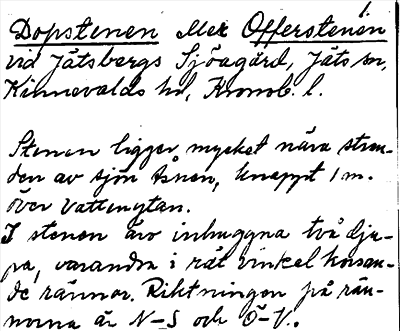 1.
Dopstenen eller Offerstenen
vid Jätsbergs Sjöagärd, Jäts sn,
Kinnevalds hd, Kronob. l.
Stenen ligger mycket nära stran-
den av sjön Åsnen, knappt 1 m.
över vattenytan.
I stenen äro inhuggna två dju-
pa, varandra i rät vinkel korsan-
de rännor. Riktningen på rän-
norna är N-S och Ö-V.